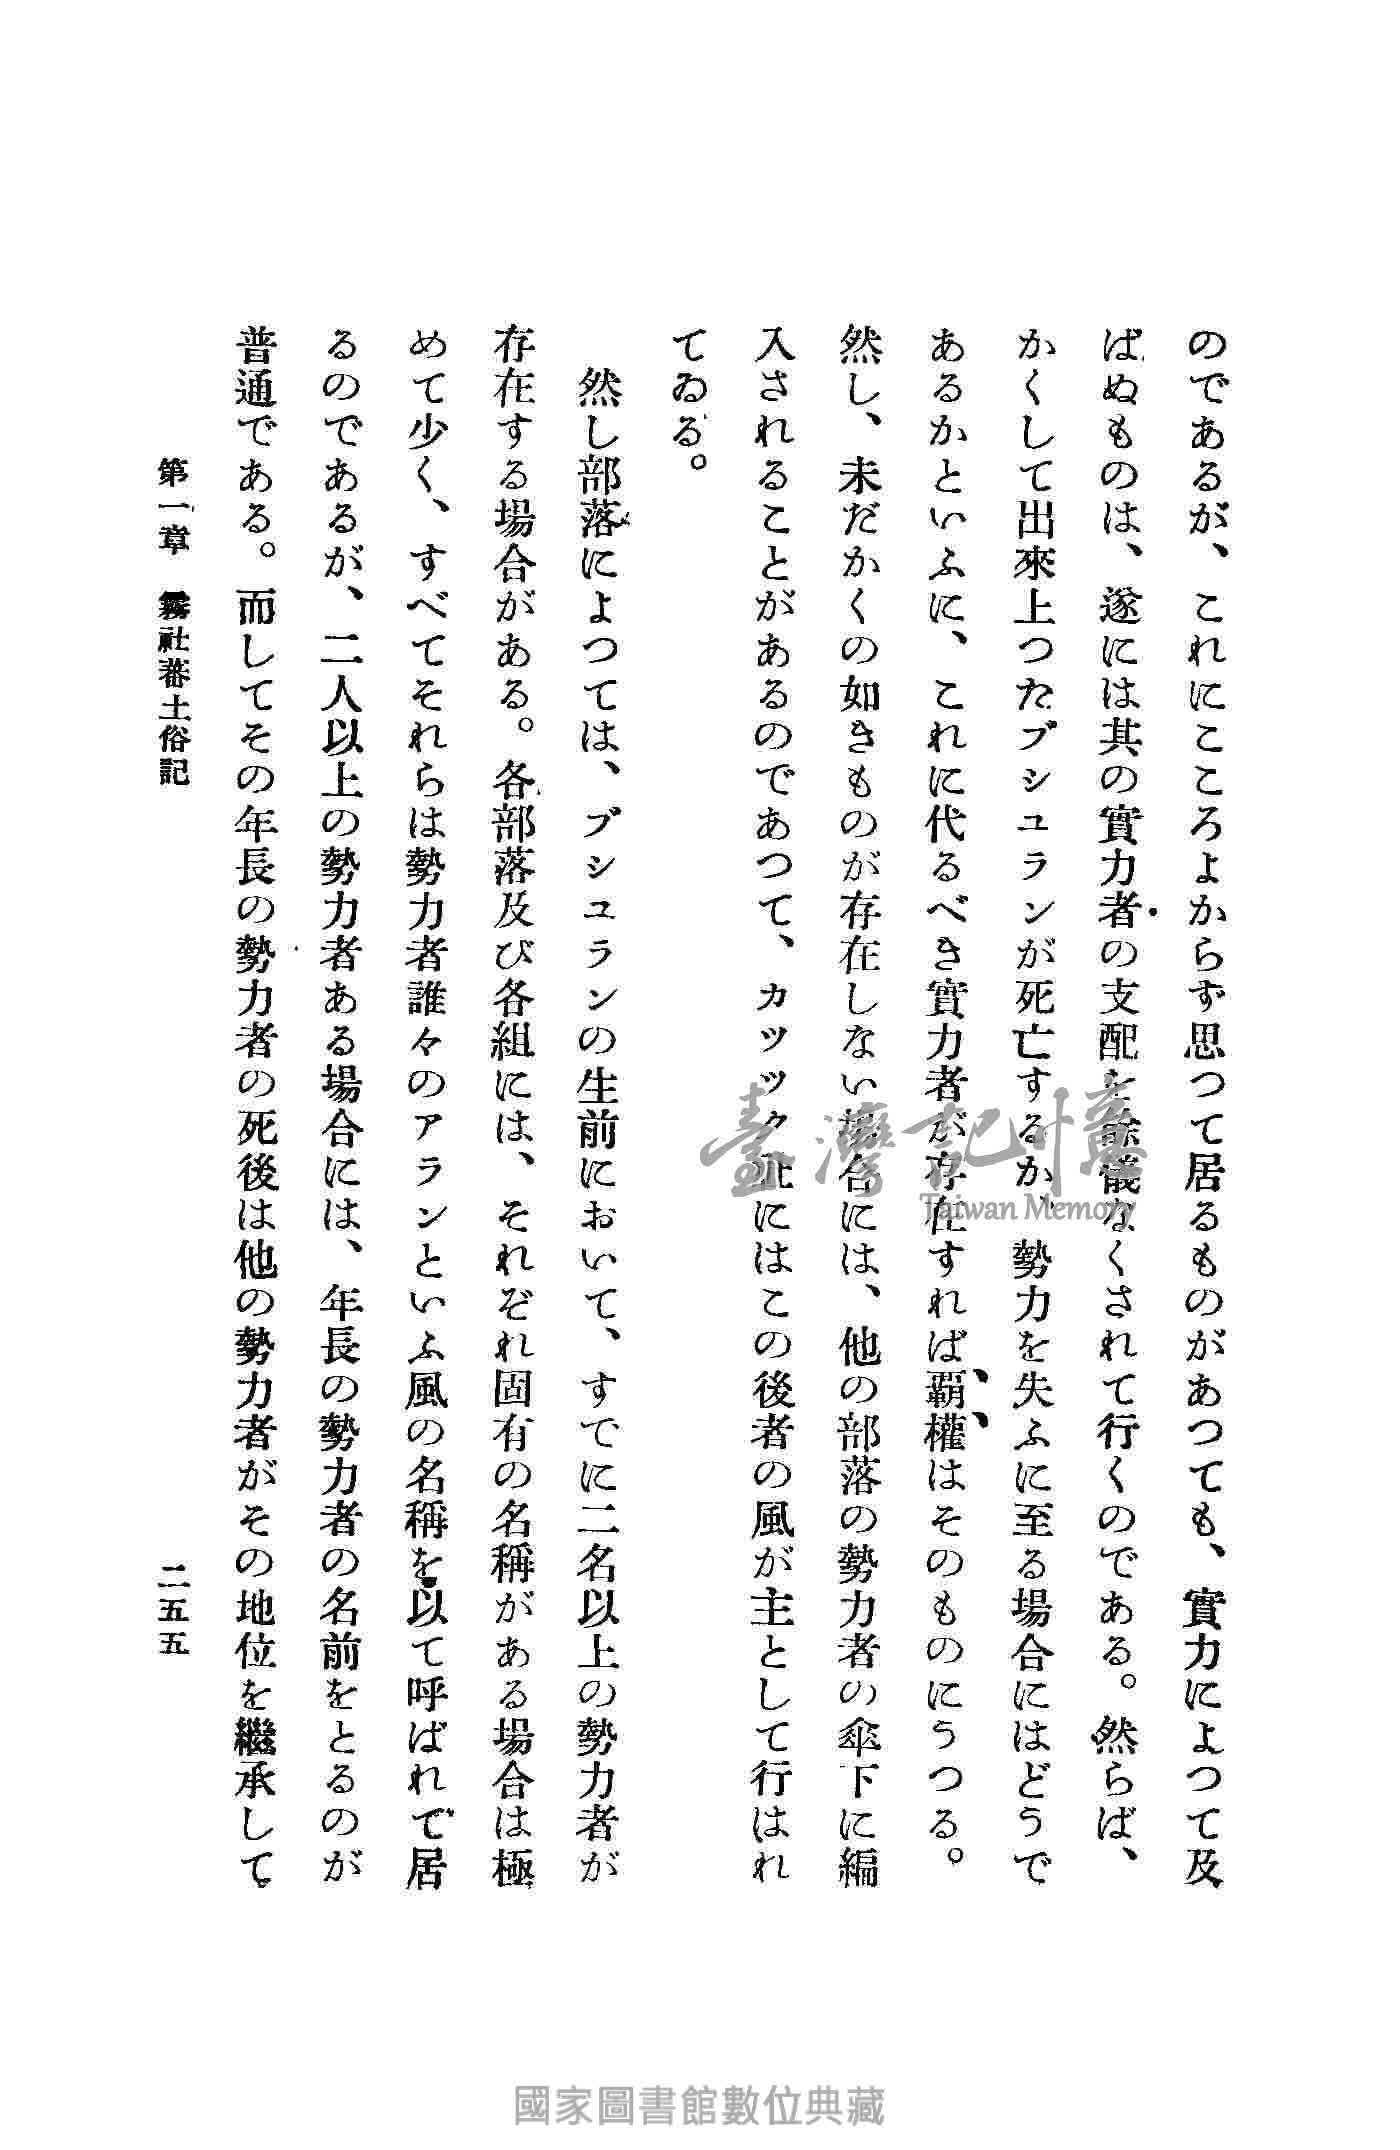 のであるが、これにこころよからず思つて居るものがあつても、實力によつて及
ばぬものは、遂には其の實力者の支配を餘儀なくされて行くのである。然らば、
かくして出來上つたブシユランが死亡するか、勢力を失ふに至る場合にはどうで
あるかといふに、これに代るべき實力者が存在すれば覇權はそのものにうつる。
然し、未だかくの如きものが存在しない場合には、他の部落の勢力者の傘下に編
入されることがあるのであつて、カツツク社にはこの後者の風が主として行はれ
てゐる。
然し部落によつては、ブシユランの生前において、すでに二名以上の勢力者が
存在する場合がある。各部落及び各組には、それぞれ固有の名稱がある場合は極
めて少く、すべてそれらは勢力者誰々のアランといふ風の名稱を以て呼ばれて居
るのであるが、二人以上の勢力者ある場合には、年長の勢力者の名前をとるのが
普通である。而してその年長の勢力者の死後は他の勢力者がその地位を繼承して
第一章 霧社蕃土俗記
二五五
臺灣記憶
Taiwan Memory
國家圖書館數位典藏